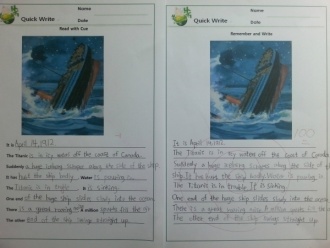 Name
Quick Write
Date
Read with Cue
It is April 14, 1912
The Titanic is in icy waters off the coast of Canada.
Suddenly a huge iceberg scrapes along the side of the ship.
It has the ship body. Water is pouring in.
The Titanic is in trouble. It is sinking.
One end of the huge ship slides slowly into the ocean.
There is a great roaring a million
The other end of the ship swings straight up.
Name
Quick Write
Date
Remember and Write
100
It is April 14, 1912.
The Titanic is in icy waters off the coast of Canada.
Suddenly a huge iceberg scrapes along the side of the
ship. It has the ship body. Water is pouring in.
The Titanic is in trouble. It is sinking.
One end of the huge ship slides slowly into the ocean.
There is a great roaring a million
The other end of the ship swings straight up.